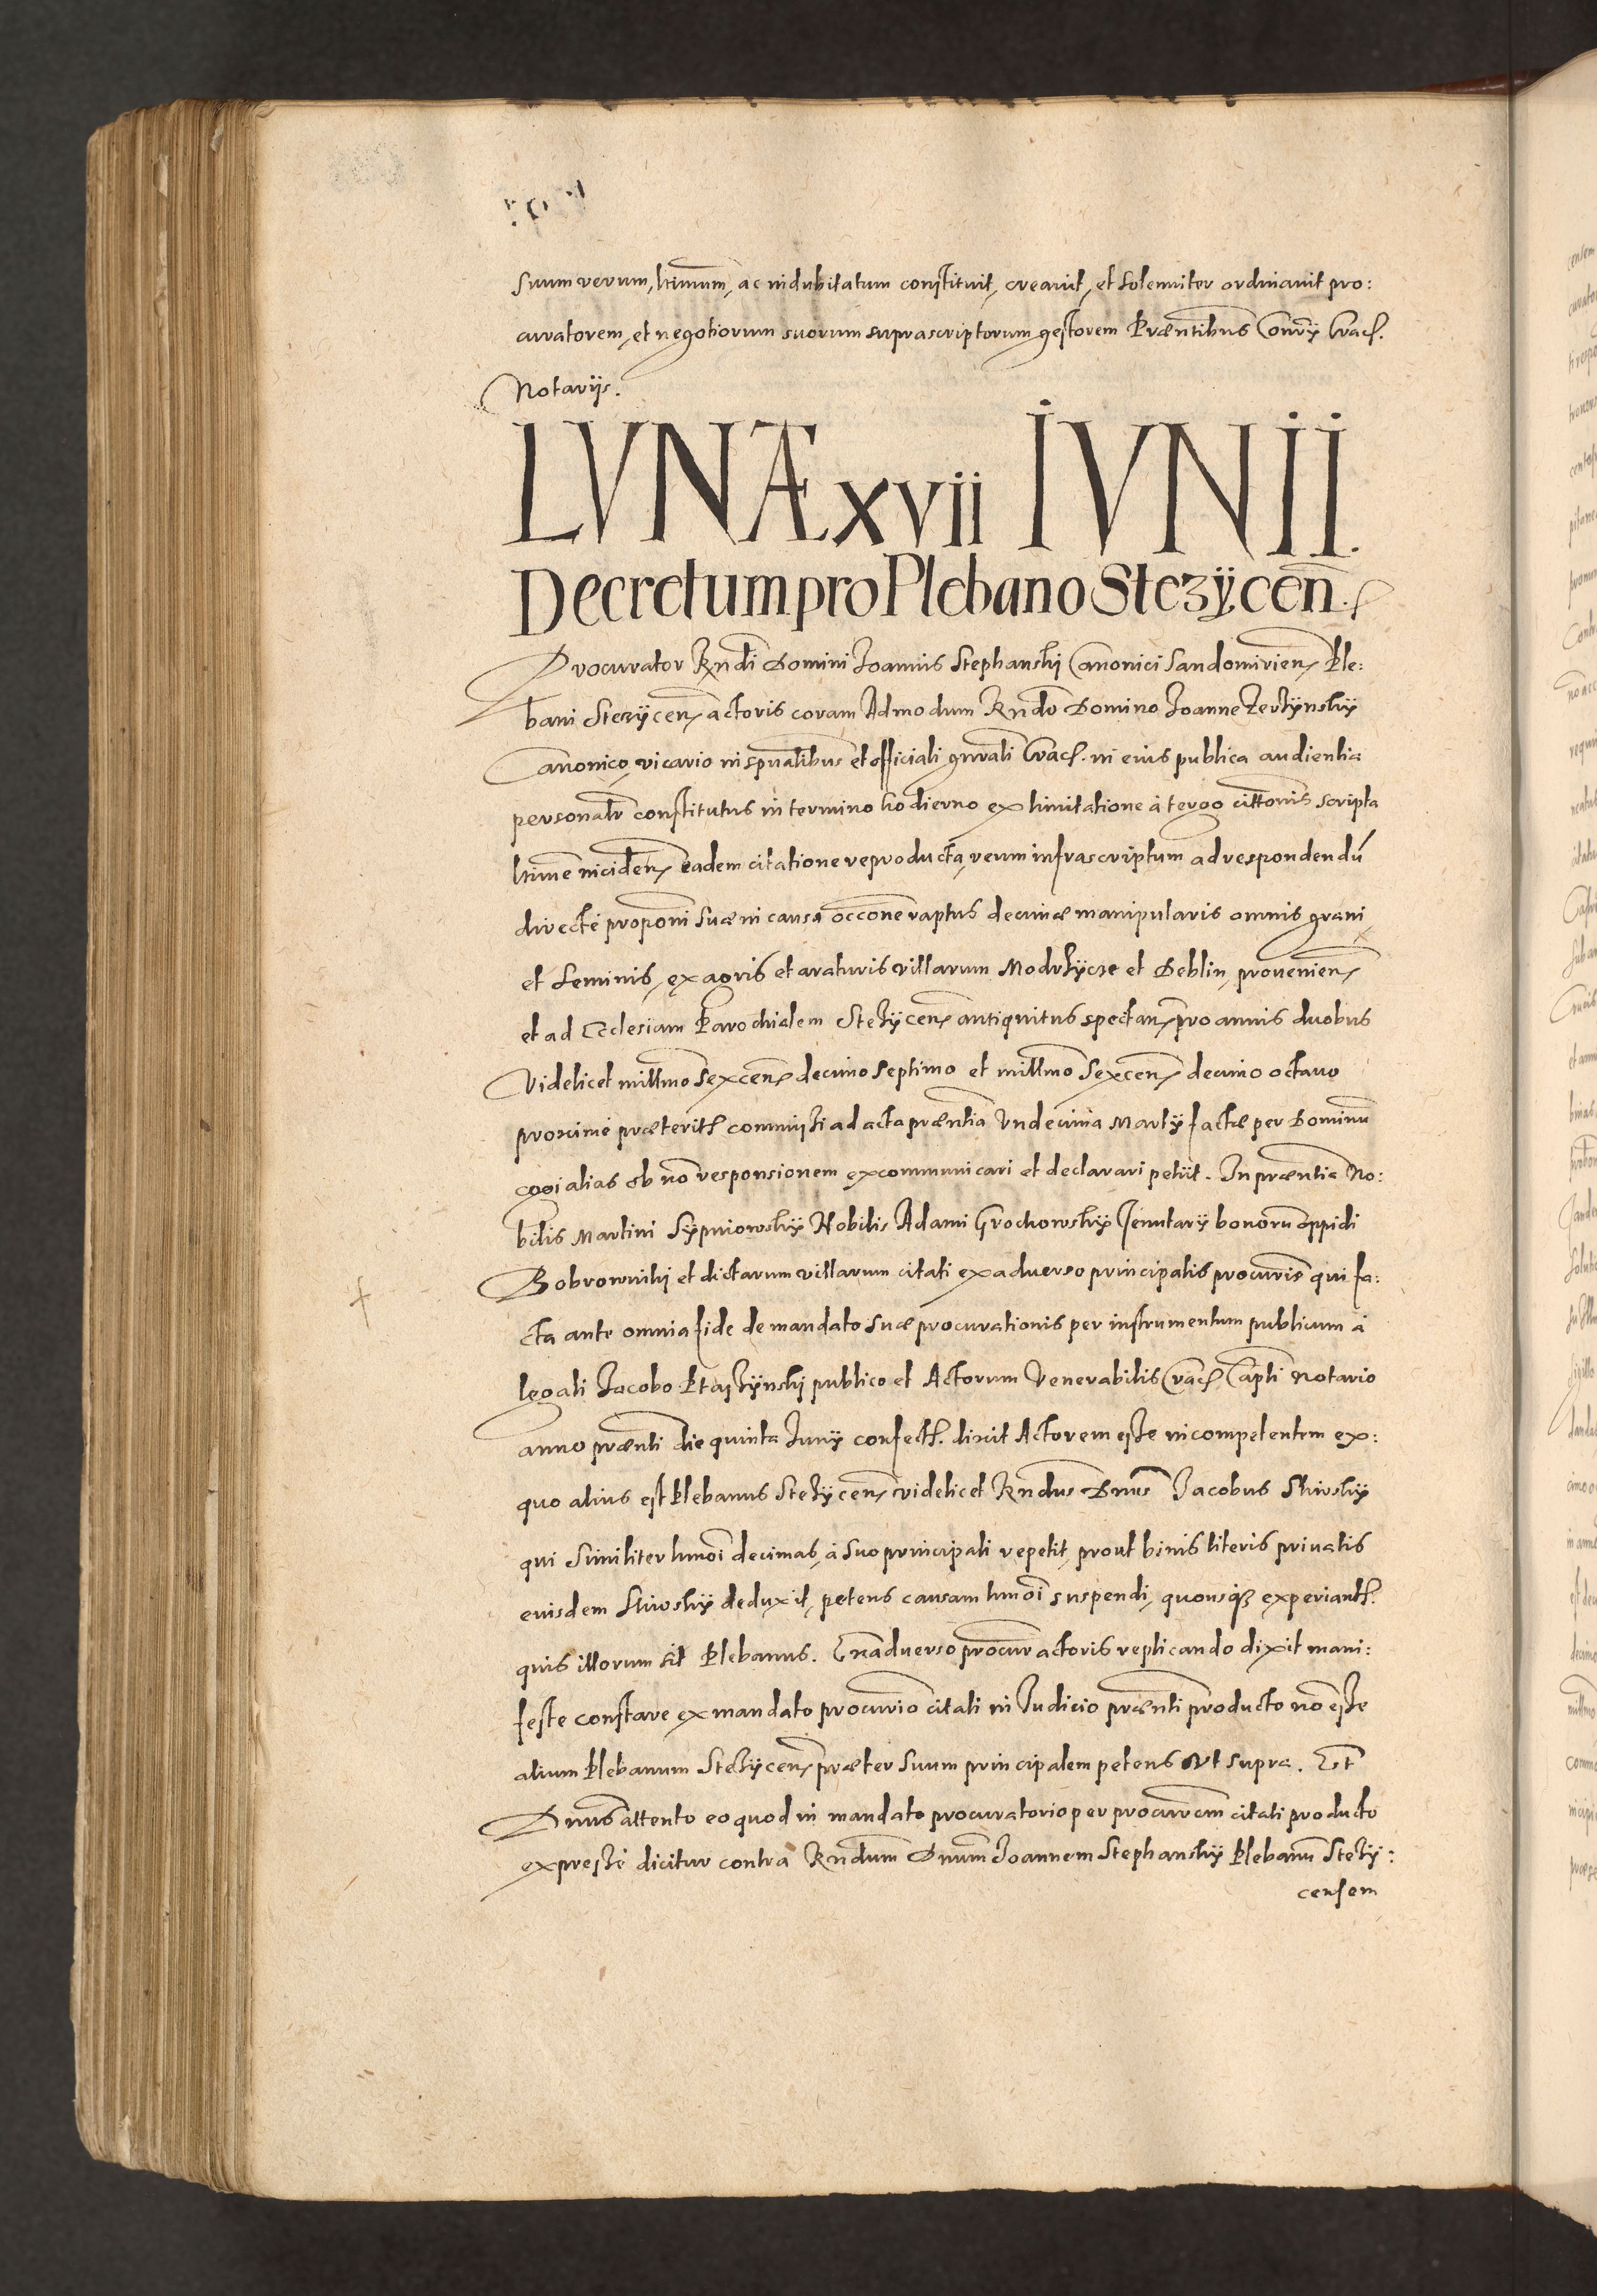 suum verum, ltimum, ac indubitatum constituit, creauit, et solenniter ordinauit pro:
curatorem, et negotiorum suorum suprascriptorum gestorem Præntibus Conrÿ Crac.
Notariis.
LVNÆ xvii IVNII.
Decretum pro Plebano Stezÿcen.
Procurator Rndi Domini Joannis Stephanski Canonici Sandomirien Ple:
bani Stezÿcen actoris coram Admodum Rndo Domino Joanne Zerzÿnskÿ
Canonico, vicario in spualibus et officiali gnrali Crac. in eius publica audientia
personalr constitutus in termino hodierno ex limitatione à tergo cittonis scripta
ltime inciden eadem citatione reproducta, reum infrascriptum ad respondendū
directè proponi suæ in causa occone raptus decimæ manipularis omnis grani
et seminis, ex agris et araturis villarum Modrzÿcze et Deblin, prouenien
et ad Ecclesiam Parochialem Stezÿcen antiquitus spectan pro annis duobus
Videlicet millmo sexcen decimo septimo et millmo sexcen decimo octauo
proximè præterit commissi ad acta præntia Vndecima Martÿ factæ per Dominū
cogi alias ob no responsionem excommunicari et declarari petiit. In præntia No:
bilis Martini Sÿpniowskÿ Nobilis Adami Grochowskÿ Tenutarÿ bonorū oppidi
Bobrowniki et dictarum villarum citati ex aduerso principalis procuris qui fa:
cta ante omnia fide de mandato suæ procurationis per instrumentum publicum à
legali Jacobo Ptaszÿnski publico et Actorum Venerabilis Crac Capli Notario
anno prænti die quinta Junÿ confect. dixit Actorem esse incompetentem ex:
quo alius est Plebanus Stezÿcen videlicet Rndus Dnus Jacobus Skirskÿ
qui similiter hmoi decimas, à suo principali repetit, prout binis literis priuatis
eiusdem Skirskÿ deduxit, petens causam hmoi suspendi, quousq3 experiant.
quis illorum sit Plebanus. Ex aduerso procur actoris replicando dixit mani:
feste constare ex mandato procurio citati in Judicio prænti producto no esse
alium Plebanum Stezÿcen præter suum principalem petens vt supra. Et
Dnus attento eo quod in mandato procuratorio per procurem citati producto
expressè dicitur contra Rndum Dnum Joannem Stephanskÿ Plebanū Stezÿ:
censem